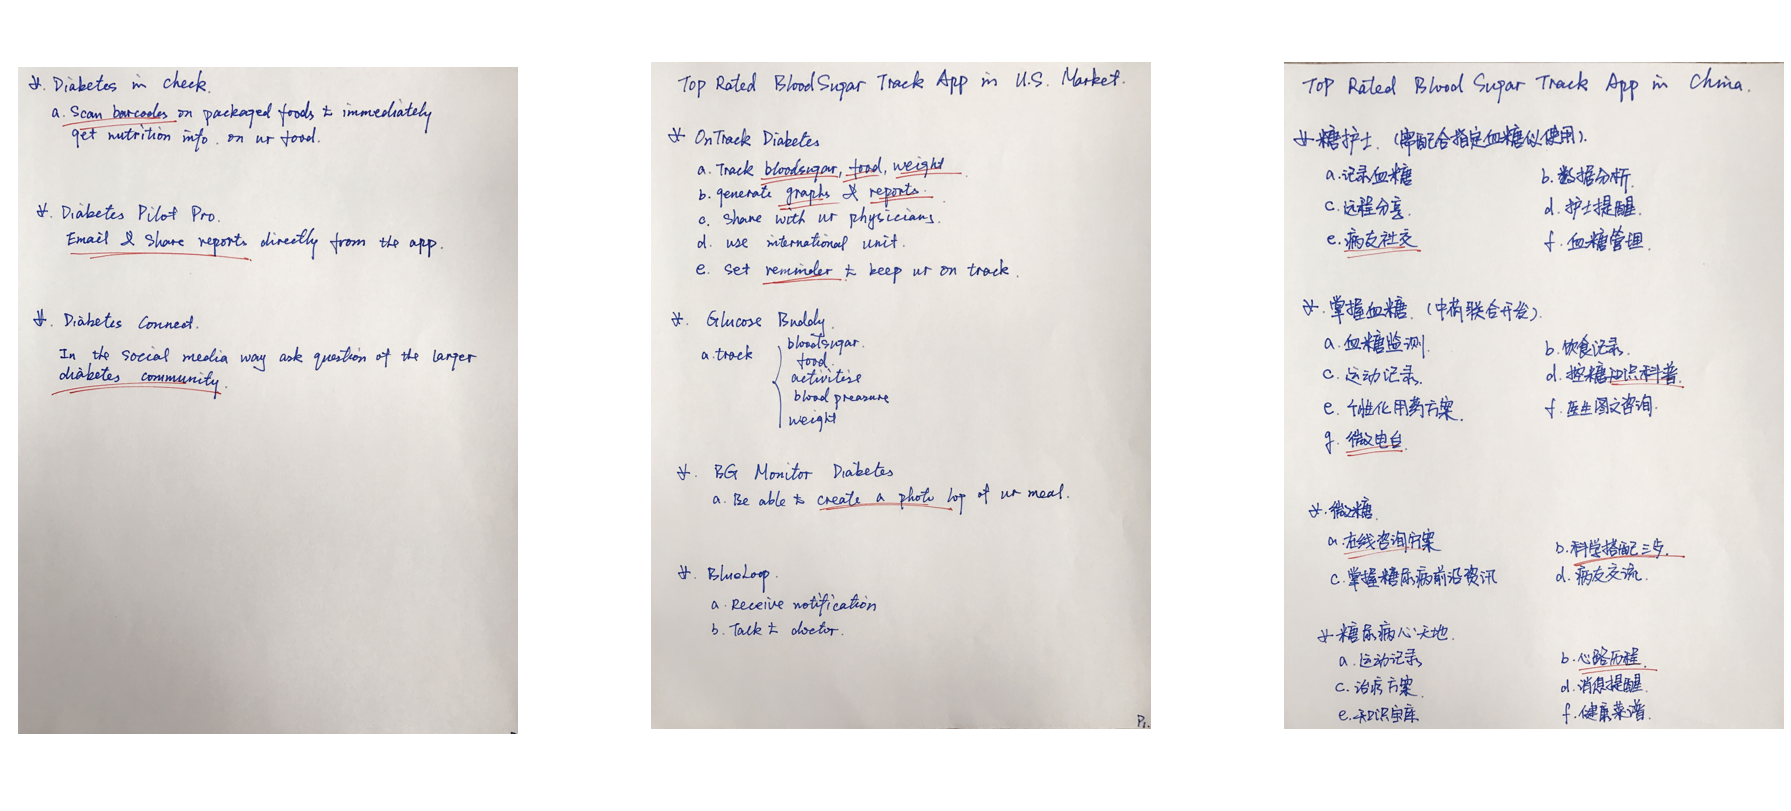 ☆. Diabetes in Check.
a. Scan barcodes on packaged foods to immediately
get nutrition info. on ur food.
☆. Diabetes Pilot Pro.
Email & Share reports directly from the app.
☆. Diabetes Connect.
In the social media way ask question of the larger
diabetes community.
Top Rated BloodSugar Track App in U.S. Market.
☆ OnTrack Diabetes
a. Track bloodsugar, food, weight
b. generate graphs & reports.
c. Share with ur physicians.
d. use international unit.
e. Set reminder to keep ur on track.
☆. Glucose Buddy.
a. track
bloodsugar.
food.
activitise
blood preasure
weight
☆. BG Monitor Diabetes
a. Be able to create a photo log of ur meal.
☆. BlueLoop.
a. Receive notification
b. Talk to doctor.
P1.
Top Rated Blood Sugar Track App in China.
☆ 糖护士. (需配合指定血糖仪使用).
a. 记录血糖
b. 数据分析.
c. 远程分享.
d. 护士提醒.
e. 病友社交
f. 血糖管理.
☆. 掌握血糖. (中尚联合开发).
a. 血糖监测.
b. 饮食记录.
c. 运动记录.
d. 控糖知识科普.
e. 个性化用药方案.
f. 医生图文咨询.
g. 微电台.
☆. 微糖.
a. 在线咨询方案
b. 科学搭配三步.
c. 掌握糖尿病前沿资讯
d. 病友交流.
☆ 糖尿病心天地.
a. 运动记录
b. 心路历程.
c. 治疗方案.
d. 消息提醒.
e. 知识宝库
f. 健康菜谱.